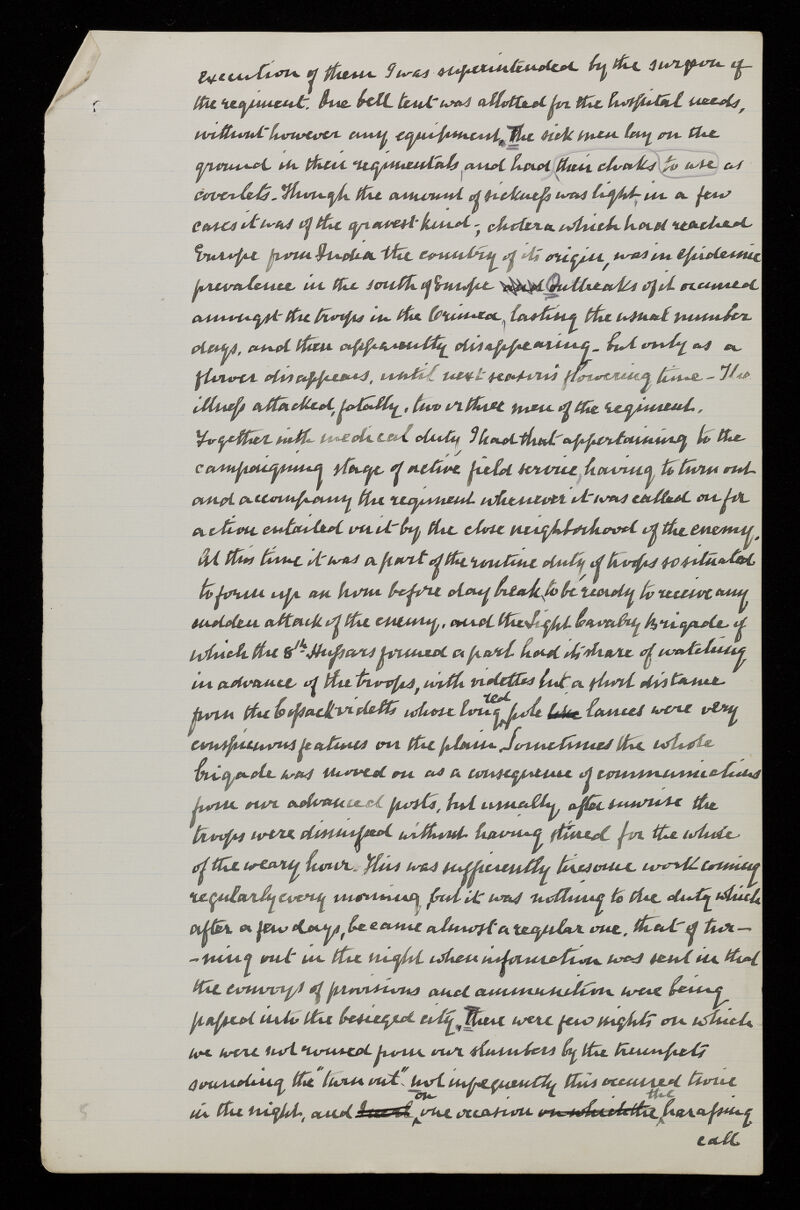 execution of them I was superintended by the surgeon of
the regiment. One bell tent was allotted for the hospital needs,
without however any equipment, The sick men lay on the
ground in their regimentals, and had their cloaks to use as
coverlets. Though the amount of sickness was light, in a few
cases it was of the gravest kind; cholera which had reached
Europe from India the country of its origin, was in epidemic
prevalence in the south of Europe and Outbreaks of it occurred
amongst the troops in the Crimea, lasting the usual number
days, and then apparently disappearing - but only as a
flower disappears, until next season's flowering time - The
illness attacked, fatally, two or three men of the regiment.
Together with medical duty I had that appertaining to the
campaigning stage of active field service, having to turn out
and accompany the regiment whenever it was called on for
action entailed on it by the close neighborhood of the enemy.
At this time it was a part of the routine duty of troops so situated
to form up an hour before day break, to be ready to receive any
sudden attack of the enemy, and the Light Cavalry Brigade of
which the 8th Hussars formed a part had its share of watching
in advance of the troops, with videttes but a short distance
from the Cossack videtts whose long red pole like lances were very
conspicuous features on the plain. Sometimes the whole
brigade was moved on as a consequence of communications
from our advanced posts, but usually, after sunrise the
troops were dismissed without having stirred for the whole
of the weary hour. This was sufficiently tiresome work coming
regularly every morning, but it was nothing to the duty which
after a few days, became almost a regular one, that of tur-
-ning out in the night when information was sent in that
the convoys of provisions and ammunition were being
passed into the besieged city. There were few nights on which
we were not roused from our slumbers by the trumpets
sounding the "turn out". not infrequently this occurred twice
in the night, and on one occasion on which the the harassing
call
5